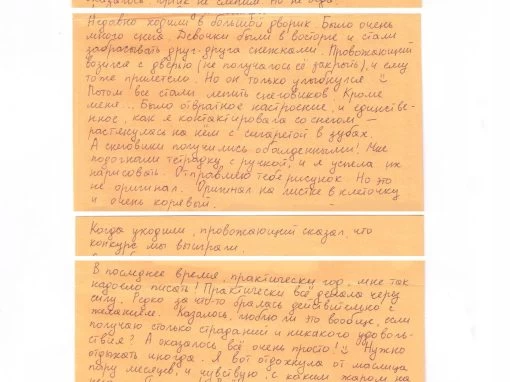 Недавно ходили в большой дворик. Было очень
много снега. Девочки были в восторге и стали
забрасывать друг-друга снежками. Провожающий
возился с дверью (не получалось её закрыть), и ему
тоже прилетело. Но он только улыбнулся
Потом все стали лепить снеговиков. Кроме
меня... Было отвратное настроение, и единстве-
нное, как я контактировала со снегом –
растянулась на нём с сигаретой в зубах.
А снеговики получились обалденными! Мне
подогнали тетрадку с ручкой, и я успела их
нарисовать. Отправляю тебе рисунок. Но это
не оригинал. Оригинал на листке в клеточку
и очень корявый.
Когда уходили, провожающий сказал, что
конкурс мы выиграли.
В последнее время, практически год, мне так
надоело писать! Практически всё делала через
силу. Редко за что-то бралась действительно с
желанием. Казалось, люблю ли это вообще, если
получаю столько страданий и никакого удоволь-
ствия? А оказалось всё очень просто! Нужно
отдыхать иногда. Я вот отдохнула от маслица
пару месяцев, и чувствую, с каким жаром на